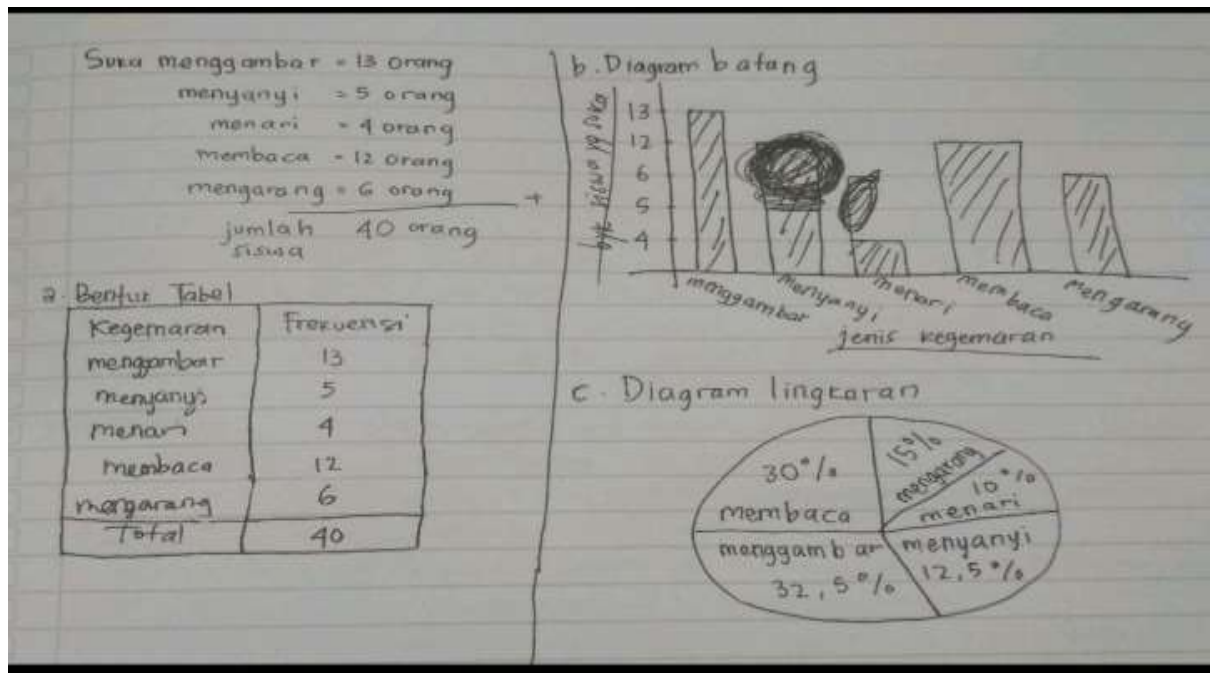 Suka menggambar = 13 orang
menyanyi = 5 orang
menari = 4 orang
membaca = 12 orang
mengarang = 6 orang +
jumlah 40 orang
siswa
a. Bentuk Tabel
Kegemaran Frekuensi
menggambar 13
menyanyi 5
menari 4
membaca 12
mengarang 6
Total 40
b. Diagram batang
siswa yg suka
13
12
6
5
4
menggambar menyanyi menari membaca mengarang
jenis kegemaran
c. Diagram lingkaran
30%
membaca
15%
mengarang
10%
menari
menggambar
32,5%
menyanyi
12,5%